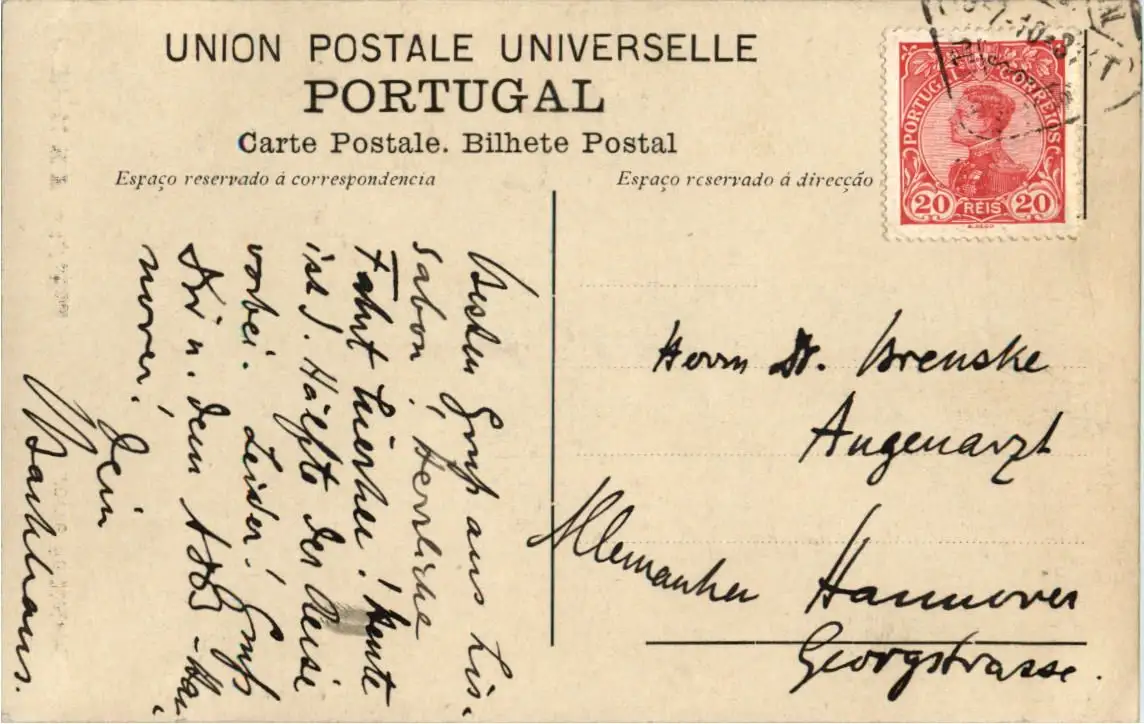 UNION POSTALE UNIVERSELLE
PORTUGAL
Carte Postale. Bilhete Postal
Espaço reservado á correspondencia
Espaço reservado á direcção
PORTUGAL CORREIOS
20 REIS 20
Besten Gruß aus Lis-
sabon! Herrliche
Fahrt hierher! Heute
ist d. Hälfte der Reise
vorbei. Leider! Gruß
Dir u. dem -Han-
nover!
Dein
Backhaus.
Herrn Dr. Brenske
Augenarzt
Allemanha
Hannover
Georgstrasse.